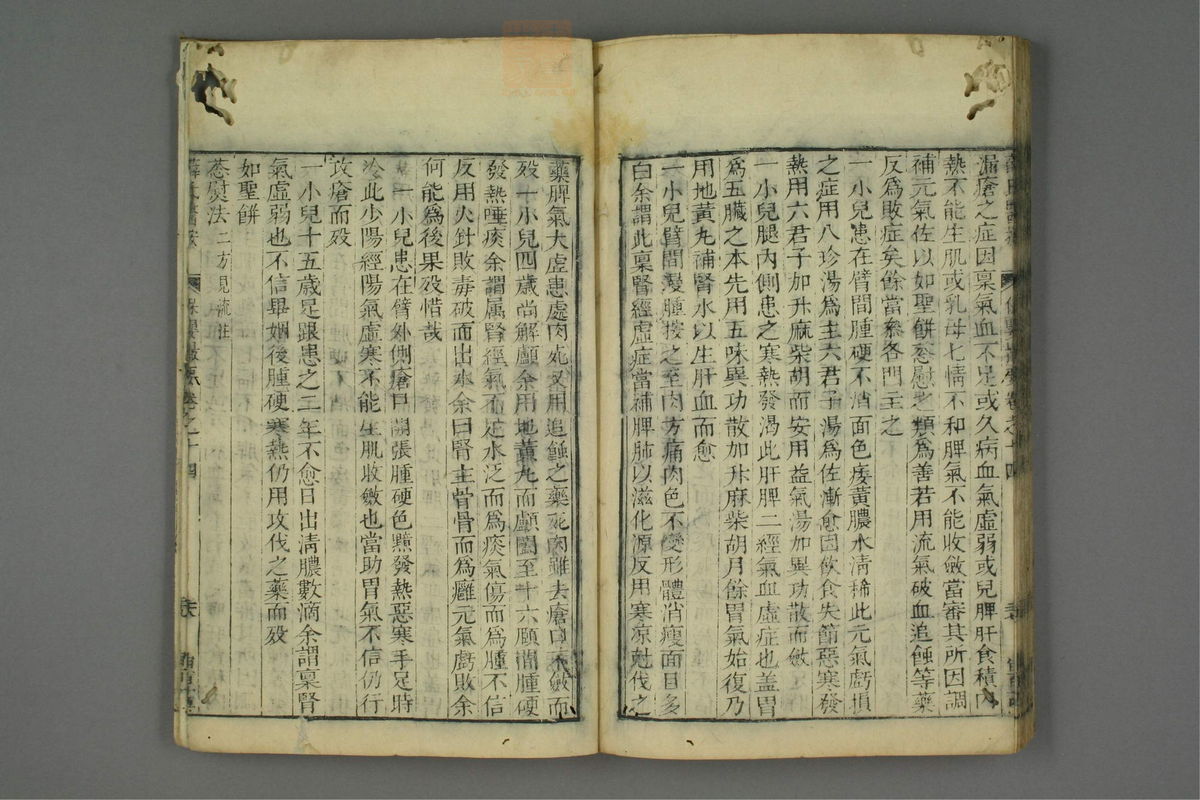 漏瘡之症因稟氣血不足或久病血氣虛弱或兒脾肝食積內
熱不能生肌或乳母七情不和脾氣不能收斂當審其所因調
補元氣佐以如聖餅葱慰之類爲善若用流氣破血追蝕等藥
反爲敗症矣餘當叅各門主之
一小兒患在臂間腫硬不消面色痿黃膿水淸稀此元氣虧損
之症用八珍湯爲主六君子湯爲佐漸愈因飲食失節惡寒發
熱用六君子加升麻柴胡而安用益氣湯加異功散而斂
一小兒腿內側患之寒熱發渴此肝脾二經氣血虛症也盖胃
爲五臟之本先用五味異功散加升麻柴胡月餘胃氣始復乃
用地黃丸補腎水以生肝血而愈
一小兒臂間漫腫按之至肉方痛肉色不變形體消瘦面目多
白余謂此稟腎經虛症當補脾肺以滋化源反用寒凉尅伐之
藥脾氣大虛患處肉死又用追蝕之藥死肉雖去瘡口不斂而
歿一小兒四歲尚解顱余用地黃丸而顱闔至十六頤間腫硬
發熱唾痰余謂属腎經氣不足水泛而爲痰氣傷而爲腫不信
反用火針敗毒破而出水余曰腎主骨骨而爲癰元氣虧敗余
何能爲後果歿惜哉
一小兒患在臂外側瘡口開張腫硬色黯發熱惡寒手足時
冷此少陽經陽氣虛寒不能生肌收斂也當助胃氣不信仍行
攻瘡而歿
一小兒十五歲足跟患之二年不愈日出淸膿數滴余謂稟腎
氣虛弱也不信畢姻後腫硬寒熱仍用攻伐之藥而歿
如聖餅
葱熨法二方見流注
薛氏醫案 保嬰撮要卷之十四